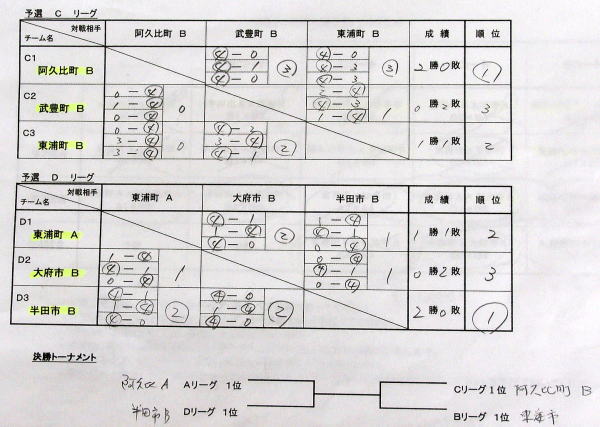 予選 C リーグ
対戦相手 チーム名 阿久比町 B 武豊町 B 東浦町 B 成績 順位
C1 阿久比町 B ④－0 ④－1 ④－0 ③ ④－0 ④－3 ④－3 ③ 2勝0敗 ①
C2 武豊町 B 0－④ 1－④ 0－④ 0 2－④ ④－3 1－④ 1 0勝2敗 3
C3 東浦町 B 0－④ 3－④ 3－④ 0 ④－2 3－④ ④－1 ② 1勝1敗 2
予選 D リーグ
対戦相手 チーム名 東浦町 A 大府市 B 半田市 B 成績 順位
D1 東浦町 A ④－1 1－④ ④－0 ② 1－④ ④－1 0－④ 1 1勝1敗 2
D2 大府市 B 1－④ ④－1 0－④ 1 0－④ ④－1 0－④ 1 0勝2敗 3
D3 半田市 B ④－1 1－④ ④－0 ② ④－0 1－④ ④－0 ② 2勝0敗 ①
決勝トーナメント
阿久比 A Aリーグ 1位 Cリーグ 1位 阿久比町 B
半田市 B Dリーグ 1位 Bリーグ 1位 東海市